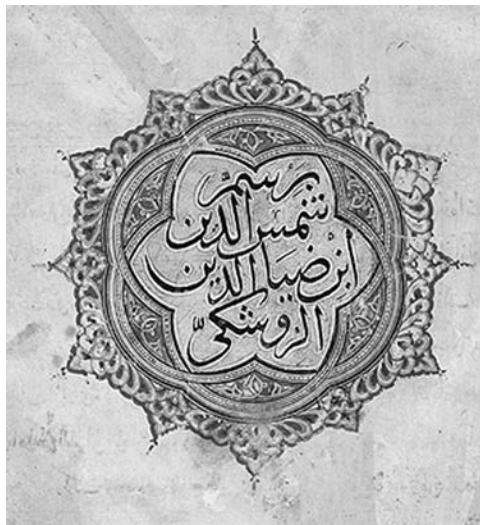 برسم
شمس الدين
ابن ضيا الدين
الزوشكى